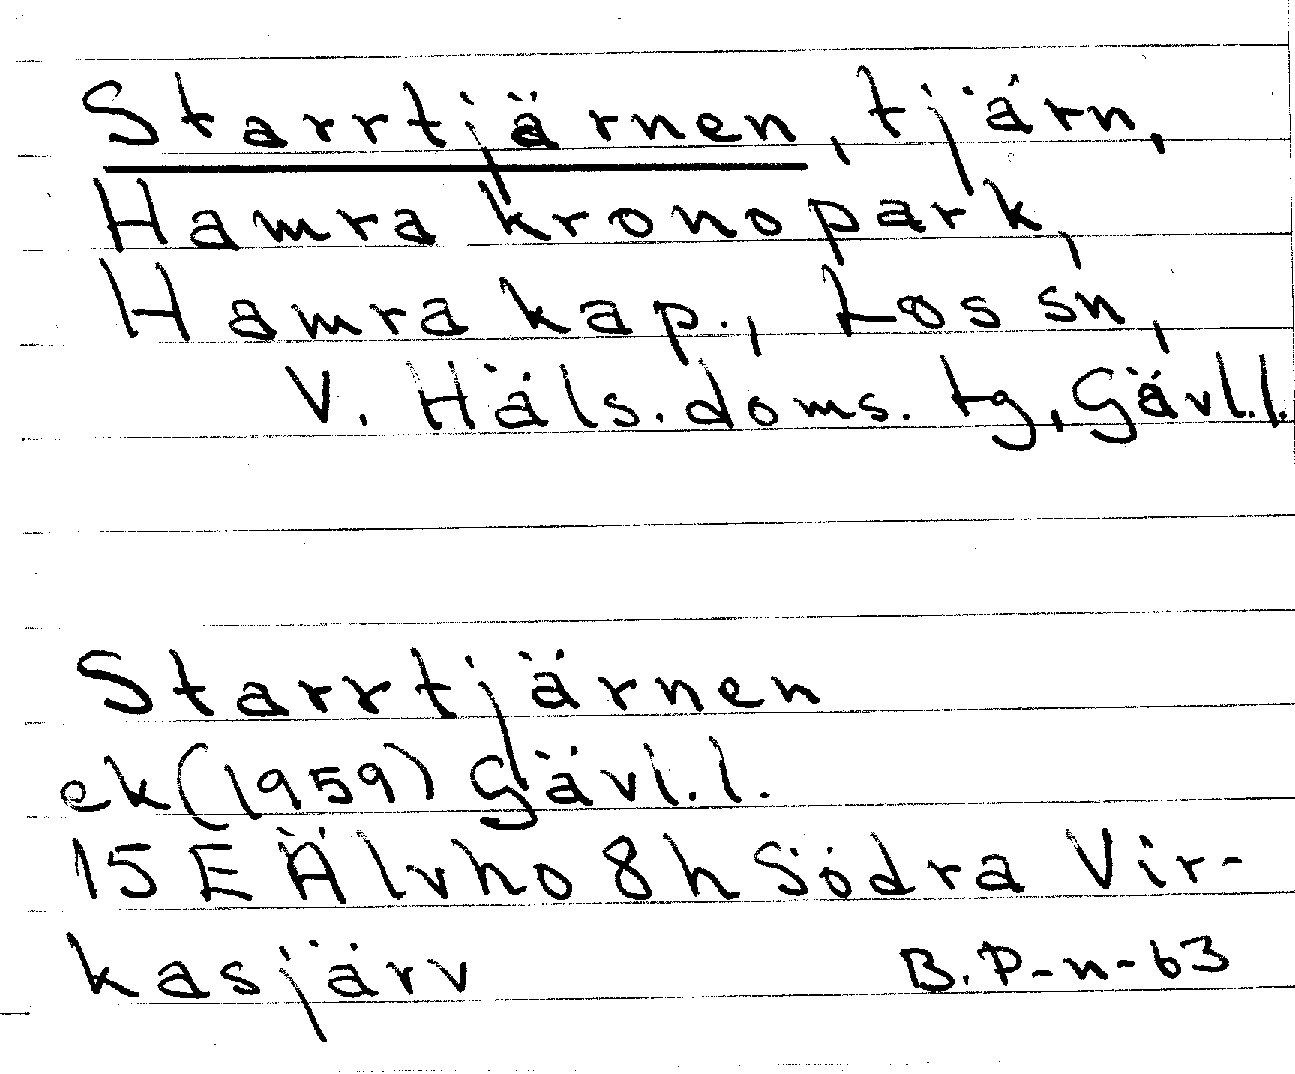 Starrtjärnen, tjärn,
Hamra kronopark,
Hamra kap., Los sn,
V. Häls. doms. tg, Gävl.l.
Starrtjärnen
ek (1959) Gävl.l.
15 E Älvho 8h Södra Vir-
kasjärv B.P-n-63